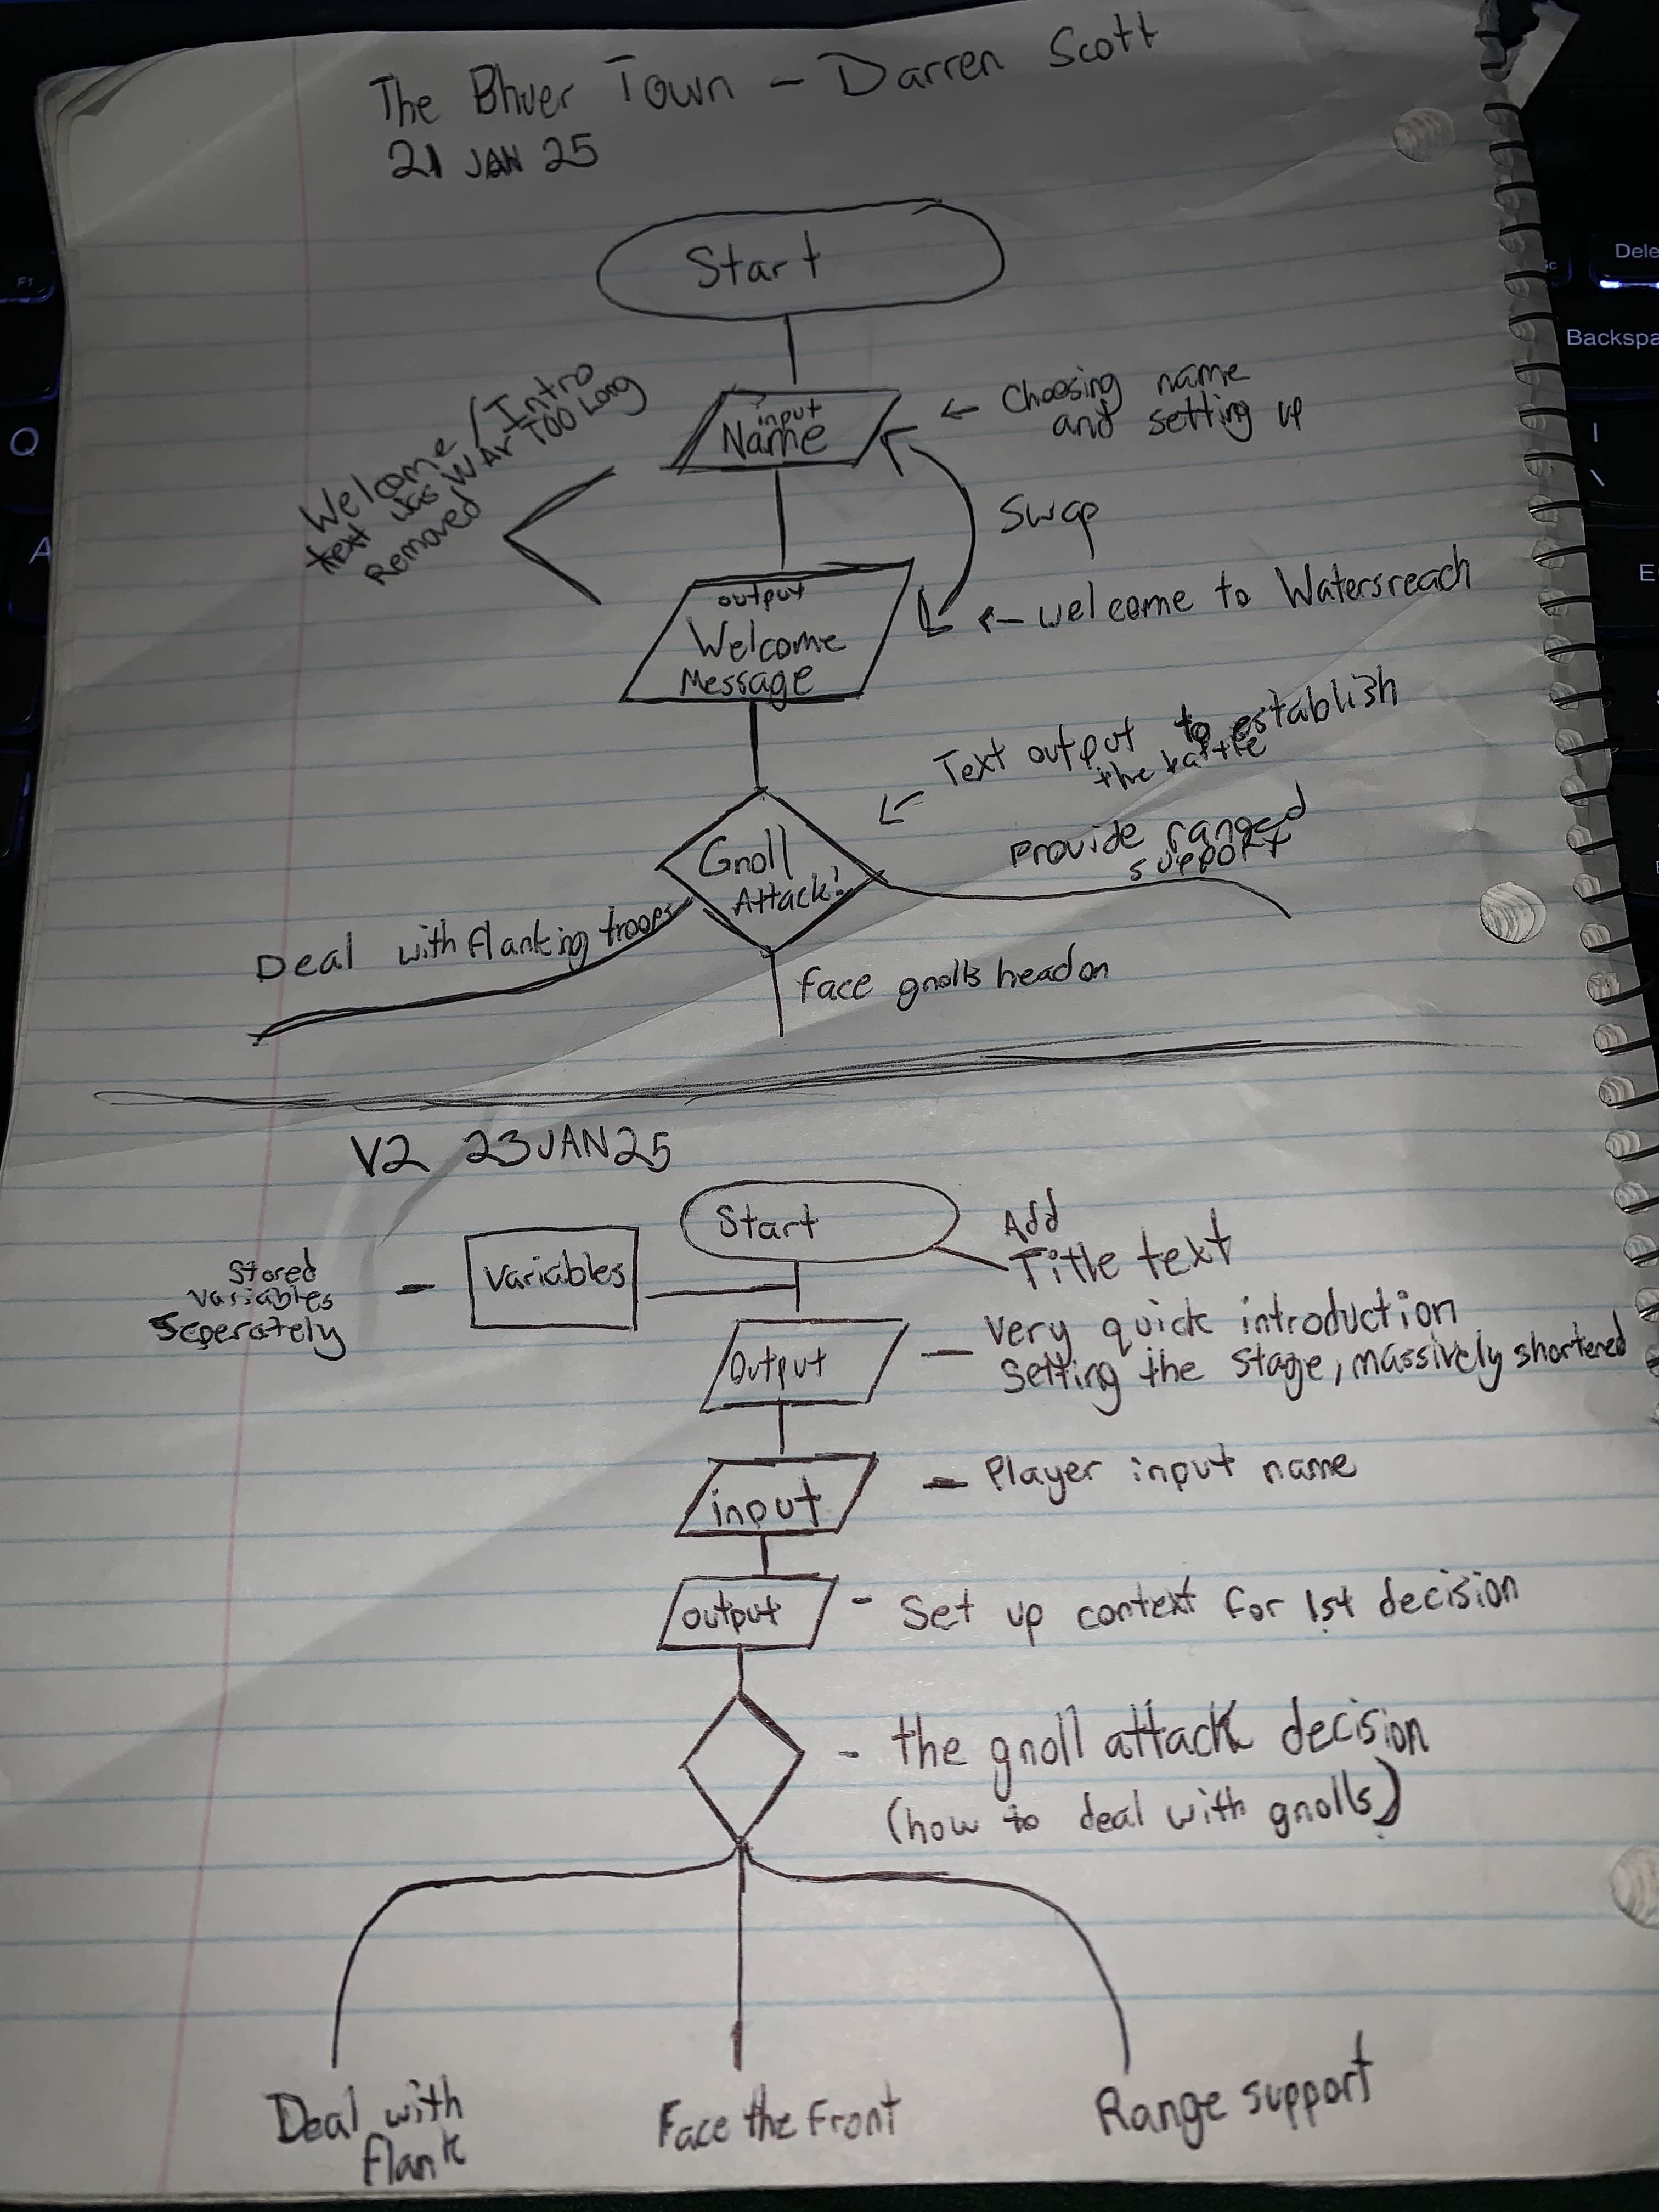 The Bhuer Town - Darren Scott
21 JAN 25
Start
input
Name
← Choosing name
and setting up
Welcome / Intro
text was WAY TOO Long
Removed
Swap
output
Welcome
Message
← welcome to Watersreach
Text output to establish
the battle
Gnoll
Attack!
Provide ranged
support
Deal with flanking troops
face gnolls head on
V2 23JAN25
Start
Add
Title text
Variables
Stored
Variables
Seperately
Output
- Very quick introduction
Setting the Stage, massively shortened
input
- Player input name
output
- Set up context for 1st decision
- the gnoll attack decision
(how to deal with gnolls)
Deal with
flank
Face the Front
Range support
F1
Q
A
Dele
Backspa
|
\
E